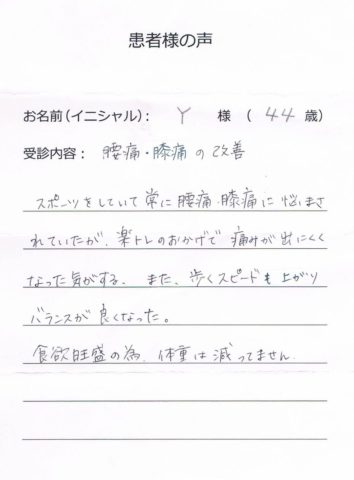 患者様の声
お名前(イニシャル): Y 様 (44 歳)
受診内容: 腰痛・膝痛の改善
スポーツをしていて常に腰痛・膝痛に悩まさ
れていたが、楽トレのおかげで痛みが出にくく
なった気がする。また、歩くスピードも上がり
バランスが良くなった。
食欲旺盛の為、体重は減ってません。